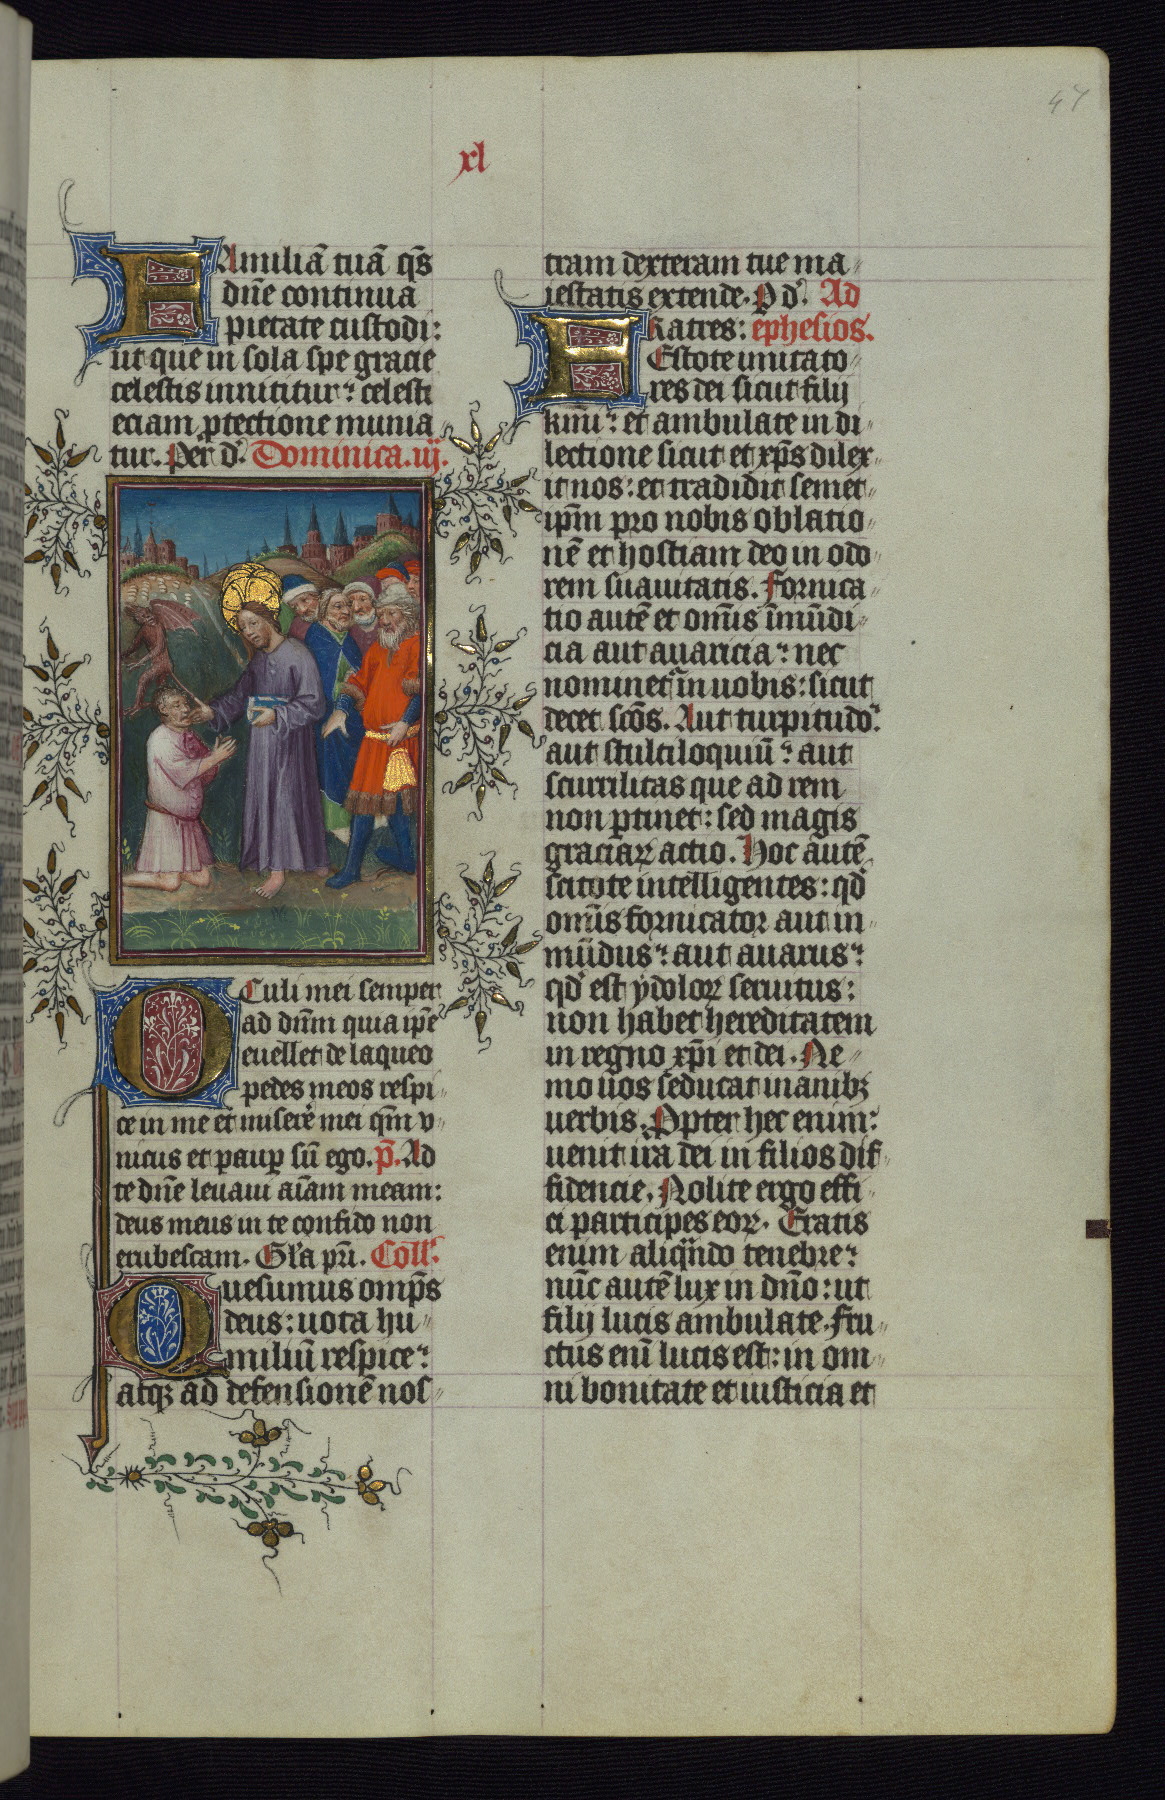 47
xl
FAmiliā tuā q̄s
dn̄e continua
pietate custodi:
ut que in sola spe gracie
celestis innititur: celesti
eciam ꝓtectione munia
tur. Per d̄. Dominica .iij.
OCuli mei semper
ad dn̄m quia ip̄e
euellet de laqueo
pedes meos respi
ce in me et miserē mei qm̄ v
nicus et pauꝑ sū ego. p̄. Ad
te dn̄e leuaui aīam meam:
deus meus in te confido non
erubescam. Gl'a pr̄i. Coll'.
Quesumus omp̄s
deus: uota hu
miliū respice:
atqꝫ ad defensionē nos
tram dexteram tue ma
iestatis extende. P d̄. Ad
FRatres: ephesios.
Estote imitato
res dei sicut filij
kmī: et ambulate in di
lectione sicut et xp̄s dilex
it nos: et tradidit semet
ip̄m pro nobis oblatio
nē et hostiam deo in odo
rem suauitatis. Fornica
tio autē et om̄is īmūdi
cia aut auaricia: nec
nominet᷑ in uobis: sicut
decet sc̄os. Aut turpitudo:
aut stultiloquiū: aut
scurrilitas que ad rem
non ꝑtinet: sed magis
graciaꝝ actio. Hoc autē
scitote intelligentes: qd̄
om̄is fornicator aut in
mūdus: aut auarus:
qd̄ est ydoloꝝ seruitus:
non habet hereditatem
in regno xp̄i et dei. Ne
mo uos seducat inanibꝫ
uerbis. Ꝓpter hec enim:
uenit ira dei in filios dif
fidencie. Nolite ergo effi
ci participes eoꝝ. Eratis
enim aliqn̄do tenebre:
nūc autē lux in dn̄o: ut
filij lucis ambulate. Fru
ctus enī lucis est: in om
ni bonitate et iusticia et